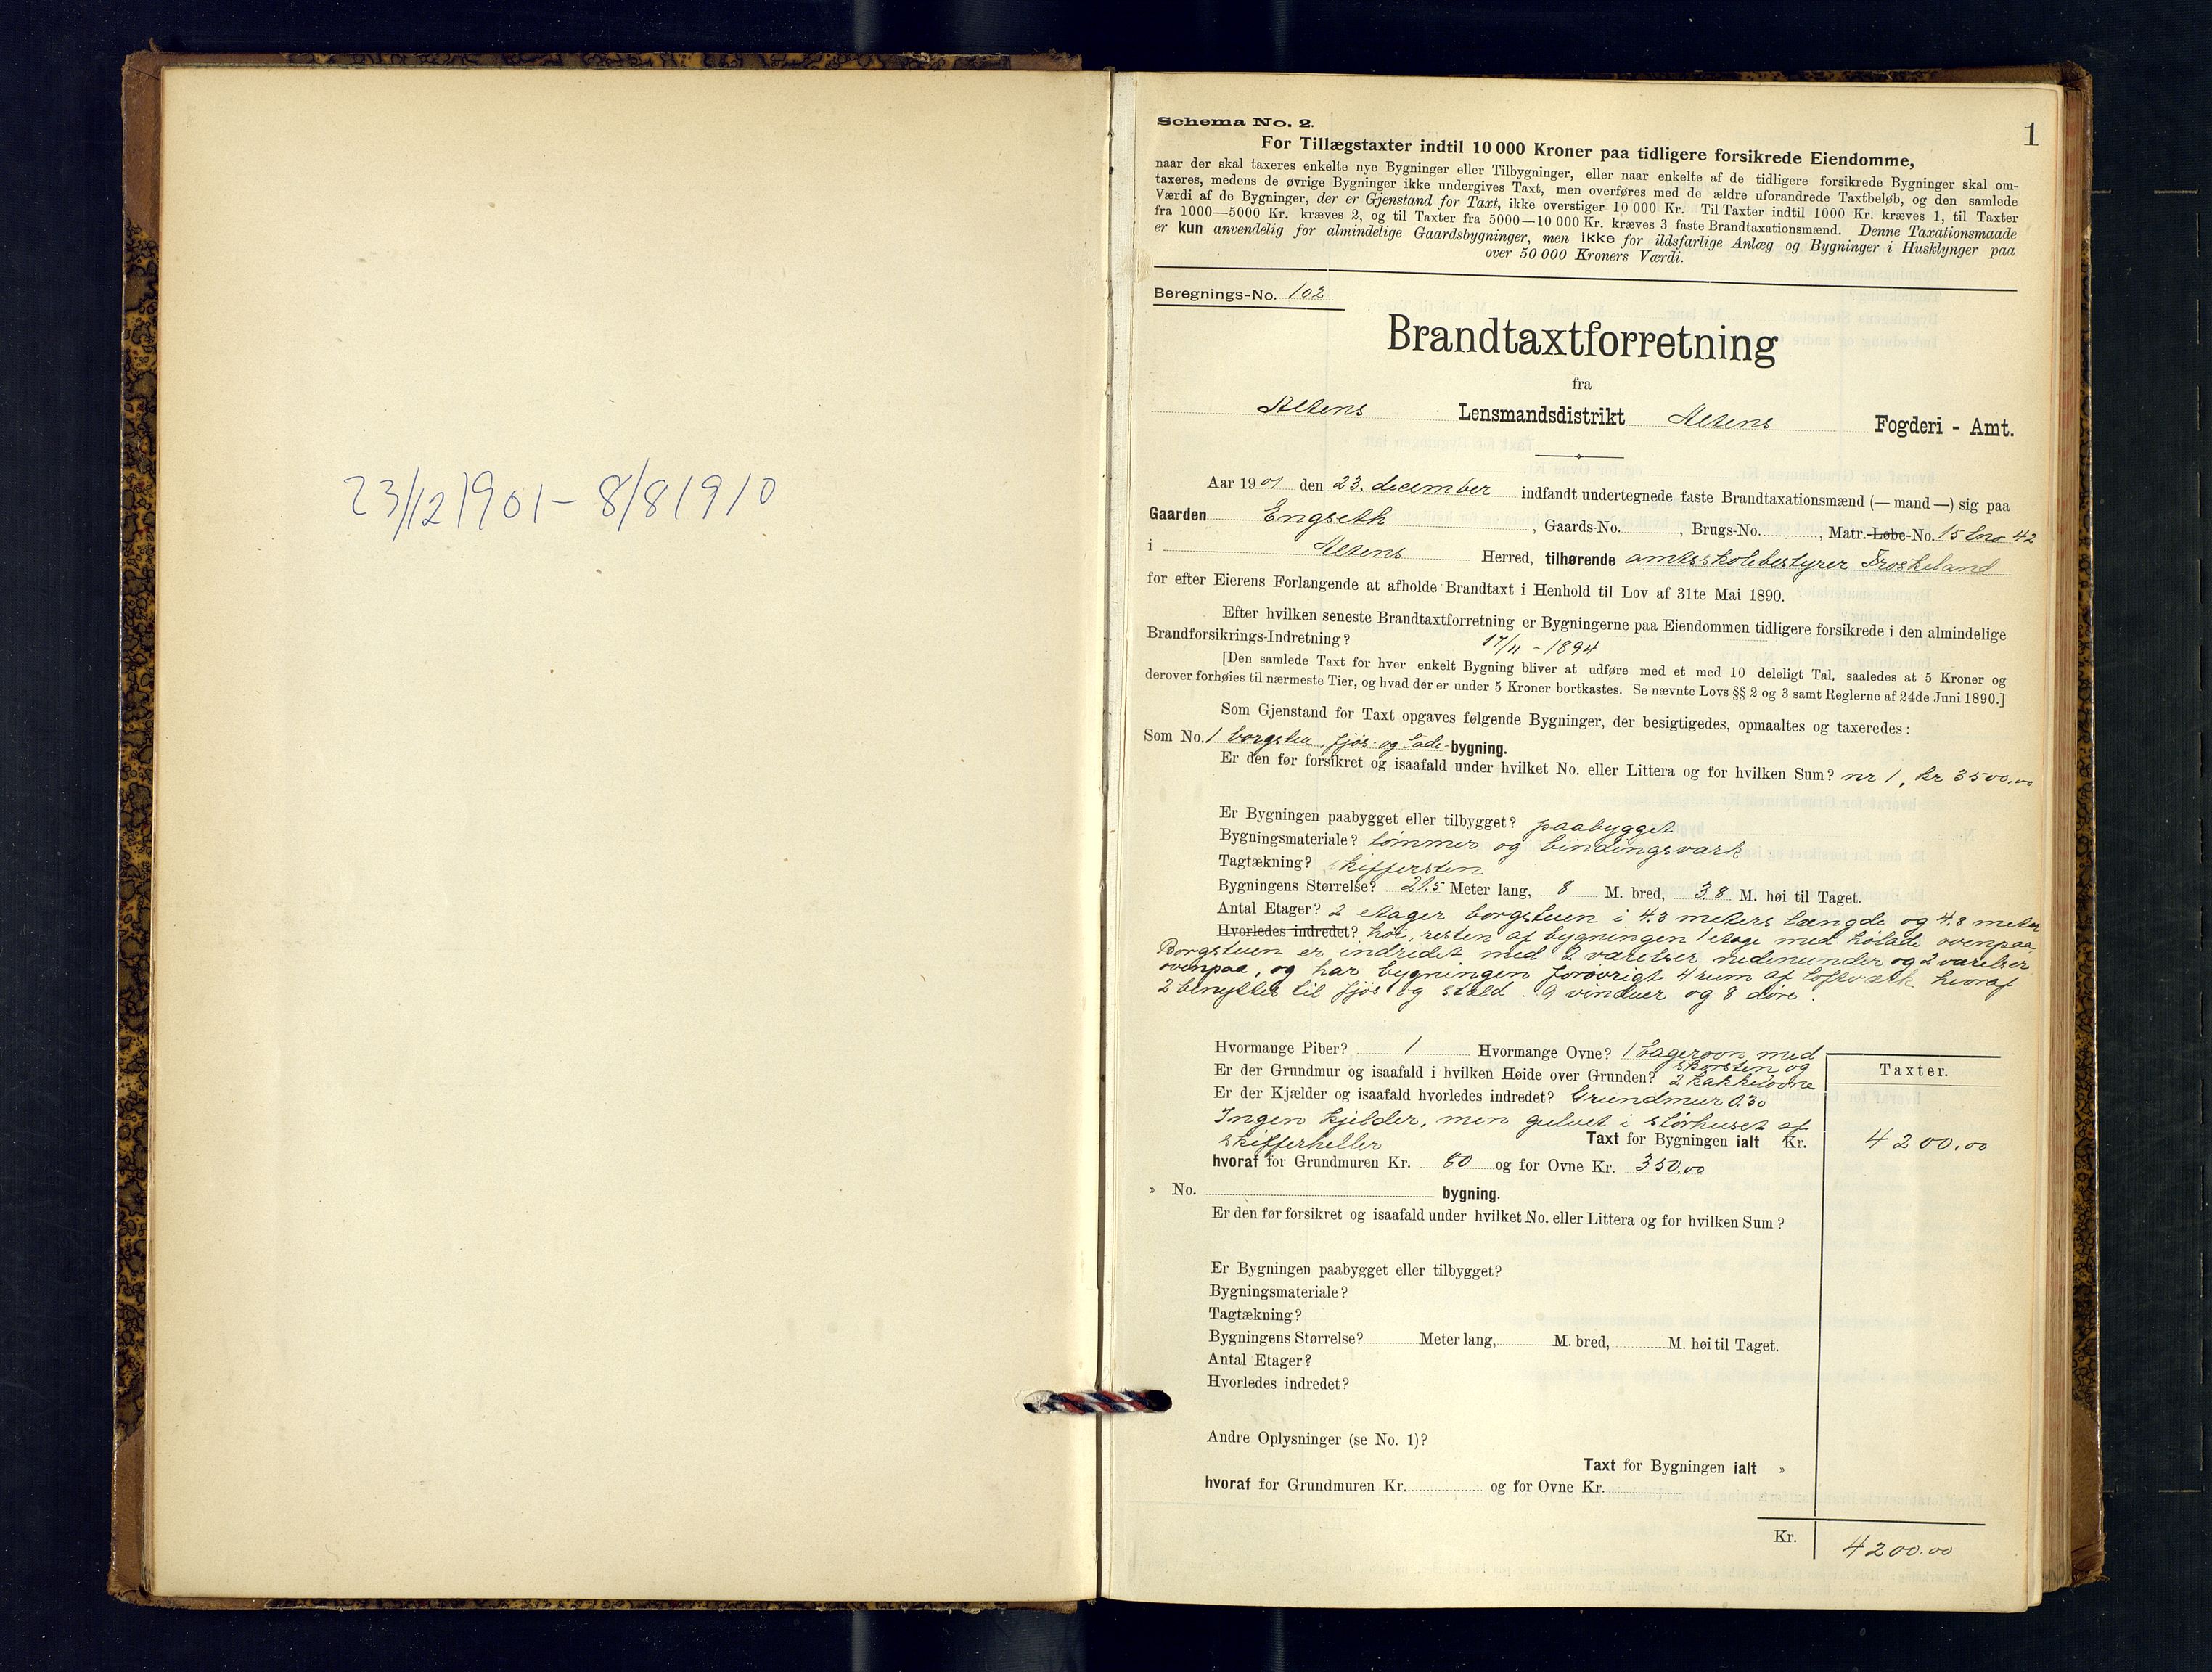 23/12 1901 – 8/8 1910
1
Schema No. 2.
For Tillægstaxter indtil 10 000 Kroner paa tidligere forsikrede Eiendomme,
naar der skal taxeres enkelte nye Bygninger eller Tilbygninger, eller naar enkelte af de tidligere forsikrede Bygninger skal om-
taxeres, medens de øvrige Bygninger ikke undergives Taxt, men overføres med de ældre uforandrede Taxtbeløb, og den samlede
Værdi af de Bygninger, der er Gjenstand for Taxt, ikke overstiger 10 000 Kr. Til Taxter indtil 1000 Kr. kræves 1, til Taxter
fra 1000—5000 Kr. kræves 2, og til Taxter fra 5000—10 000 Kr. kræves 3 faste Brandtaxationsmænd. Denne Taxationsmaade
er kun anvendelig for almindelige Gaardsbygninger, men ikke for ildsfarlige Anlæg og Bygninger i Husklynger paa
over 50 000 Kroners Værdi.
Beregnings-No. 102
Brandtaxtforretning
fra
Altens Lensmandsdistrikt Altens Fogderi - Amt.
Aar 1901 den 23. december indfandt undertegnede faste Brandtaxationsmænd (— mand —) sig paa
Gaarden Engseth, Gaards-No. , Brugs-No. , Matr.-Løbe-No. 15 Lno 42
i Altens Herred, tilhørende amtsskolebestyrer Froskeland
for efter Eierens Forlangende at afholde Brandtaxt i Henhold til Lov af 31te Mai 1890.
Efter hvilken seneste Brandtaxtforretning er Bygningerne paa Eiendommen tidligere forsikrede i den almindelige
Brandforsikrings-Indretning? 17/11 - 1894
[Den samlede Taxt for hver enkelt Bygning bliver at udføre med et med 10 deleligt Tal, saaledes at 5 Kroner og
derover forhøies til nærmeste Tier, og hvad der er under 5 Kroner bortkastes. Se nævnte Lovs §§ 2 og 3 samt Reglerne af 24de Juni 1890.]
Som Gjenstand for Taxt opgaves følgende Bygninger, der besigtigedes, opmaaltes og taxeredes:
Som No. 1 borgstu, fjøs- og lade-bygning.
Er den før forsikret og isaafald under hvilket No. eller Littera og for hvilken Sum? nr 1, kr 3500.00
Er Bygningen paabygget eller tilbygget? paabygget
Bygningsmateriale? tømmer og bindingsværk
Tagtækning? skiffersten
Bygningens Størrelse? 21.5 Meter lang, 8 M. bred, 3.8 M. høi til Taget.
Antal Etager? 2 etager borgstuen i 4.3 meters længde og 4.8 meter
Hvorledes indredet? høi, resten af bygningen 1 etage med hølade ovenpaa.
Borgstuen er indredet med 2 værelser nedenunder og 2 værelser
ovenpaa, og har bygningen forøvrigt 4 rum af loftværk hvoraf
2 benyttes til fjøs og stald. 9 vinduer og 8 døre.
Hvormange Piber? 1 Hvormange Ovne? 1 bagerovn med
skorsten og
Er der Grundmur og isaafald i hvilken Høide over Grunden? 2 kakkelovne
Er der Kjælder og isaafald hvorledes indredet? Grundmur 0.30
Ingen kjelder, men gulvet i størhuset af
skifferheller Taxt for Bygningen ialt Kr.
Taxter.
4200.00
hvoraf for Grundmuren Kr. 80 og for Ovne Kr. 350.00
» No. bygning.
Er den før forsikret og isaafald under hvilket No. eller Littera og for hvilken Sum?
Er Bygningen paabygget eller tilbygget?
Bygningsmateriale?
Tagtækning?
Bygningens Størrelse? Meter lang, M. bred, M. høi til Taget.
Antal Etager?
Hvorledes indredet?
Andre Oplysninger (se No. 1)?
Taxt for Bygningen ialt »
hvoraf for Grundmuren Kr. og for Ovne Kr.
Kr. 4200.00